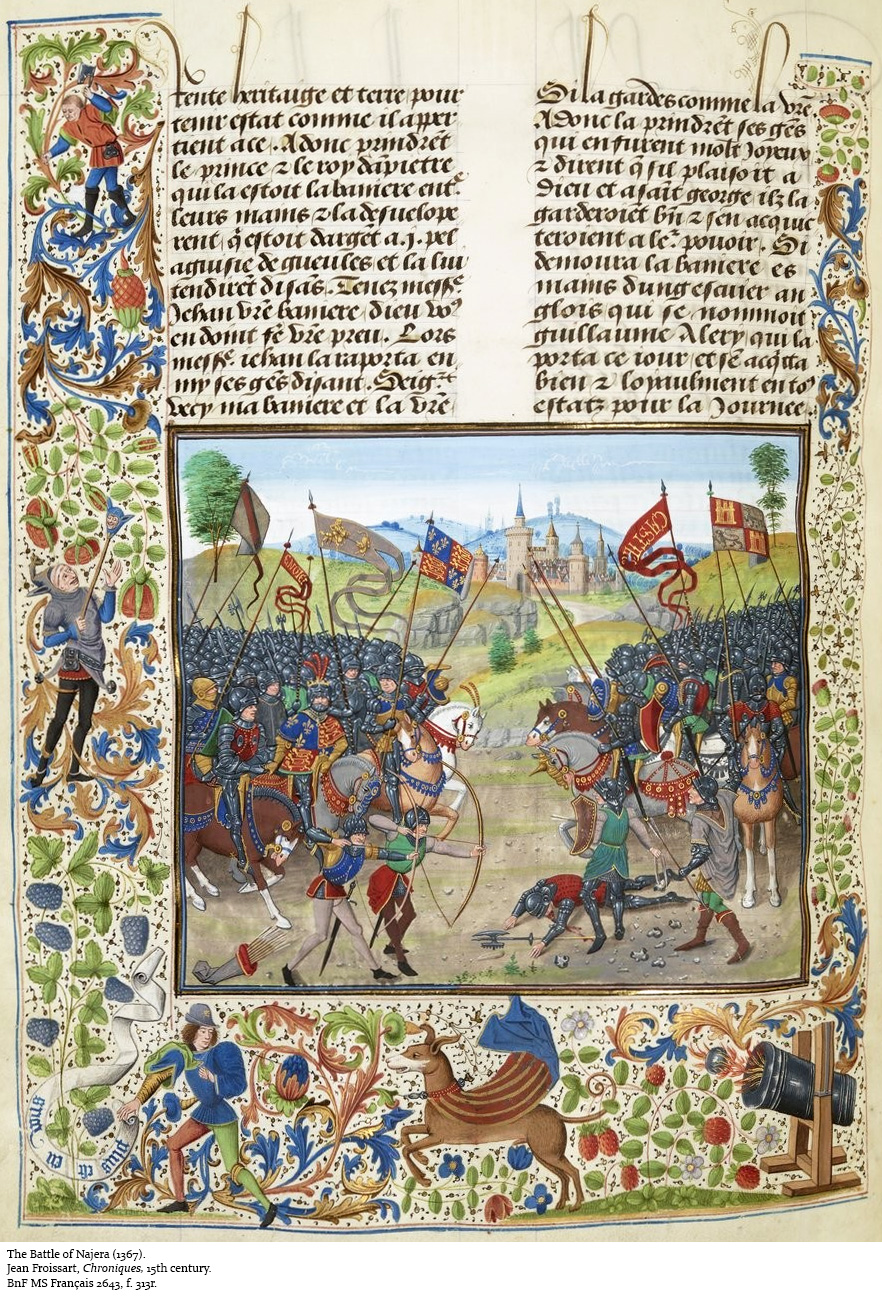 tente heritaige et terre pour
tenir estat comme il apper
tient a ce . Adonc prindrēt
le prince ⁊ le roy dãpietre
qui la estoit la baniere entᵉ
leurs mains ⁊ la desuelope
rent , q̃ estoit dargēt a .j. pel
aguisie de gueules et la lui
tendirēt disãs . Tenez messᵉ
Jehan vr̄e baniere , dieu voꝰ
en doint fē vr̄e preu . Lors
messᵉ iehan la raporta en
my ses gēs disant . Seigʳˢ
vecy ma baniere et la vr̄e
Si la gardes comme la vr̄e
Adonc la prindrēt ses gēs
qui en furent molt Joyeux
⁊ dirent q̃ sil plaisoit a
Dieu et a saīt george ilz la
garderoiēt bñ ⁊ sen acquic
teroient a leʳ pouoir . Si
demoura la baniere es
mains dung escuier an
glois qui se nommoit
guillaume Alery qui la
porta ce iour et sē acq̃ta
bien ⁊ loyaulment en toꝰ
estatz pour la Journee.
plus est en vous
The Battle of Najera (1367).
Jean Froissart, Chroniques, 15th century.
BnF MS Français 2643, f. 313r.